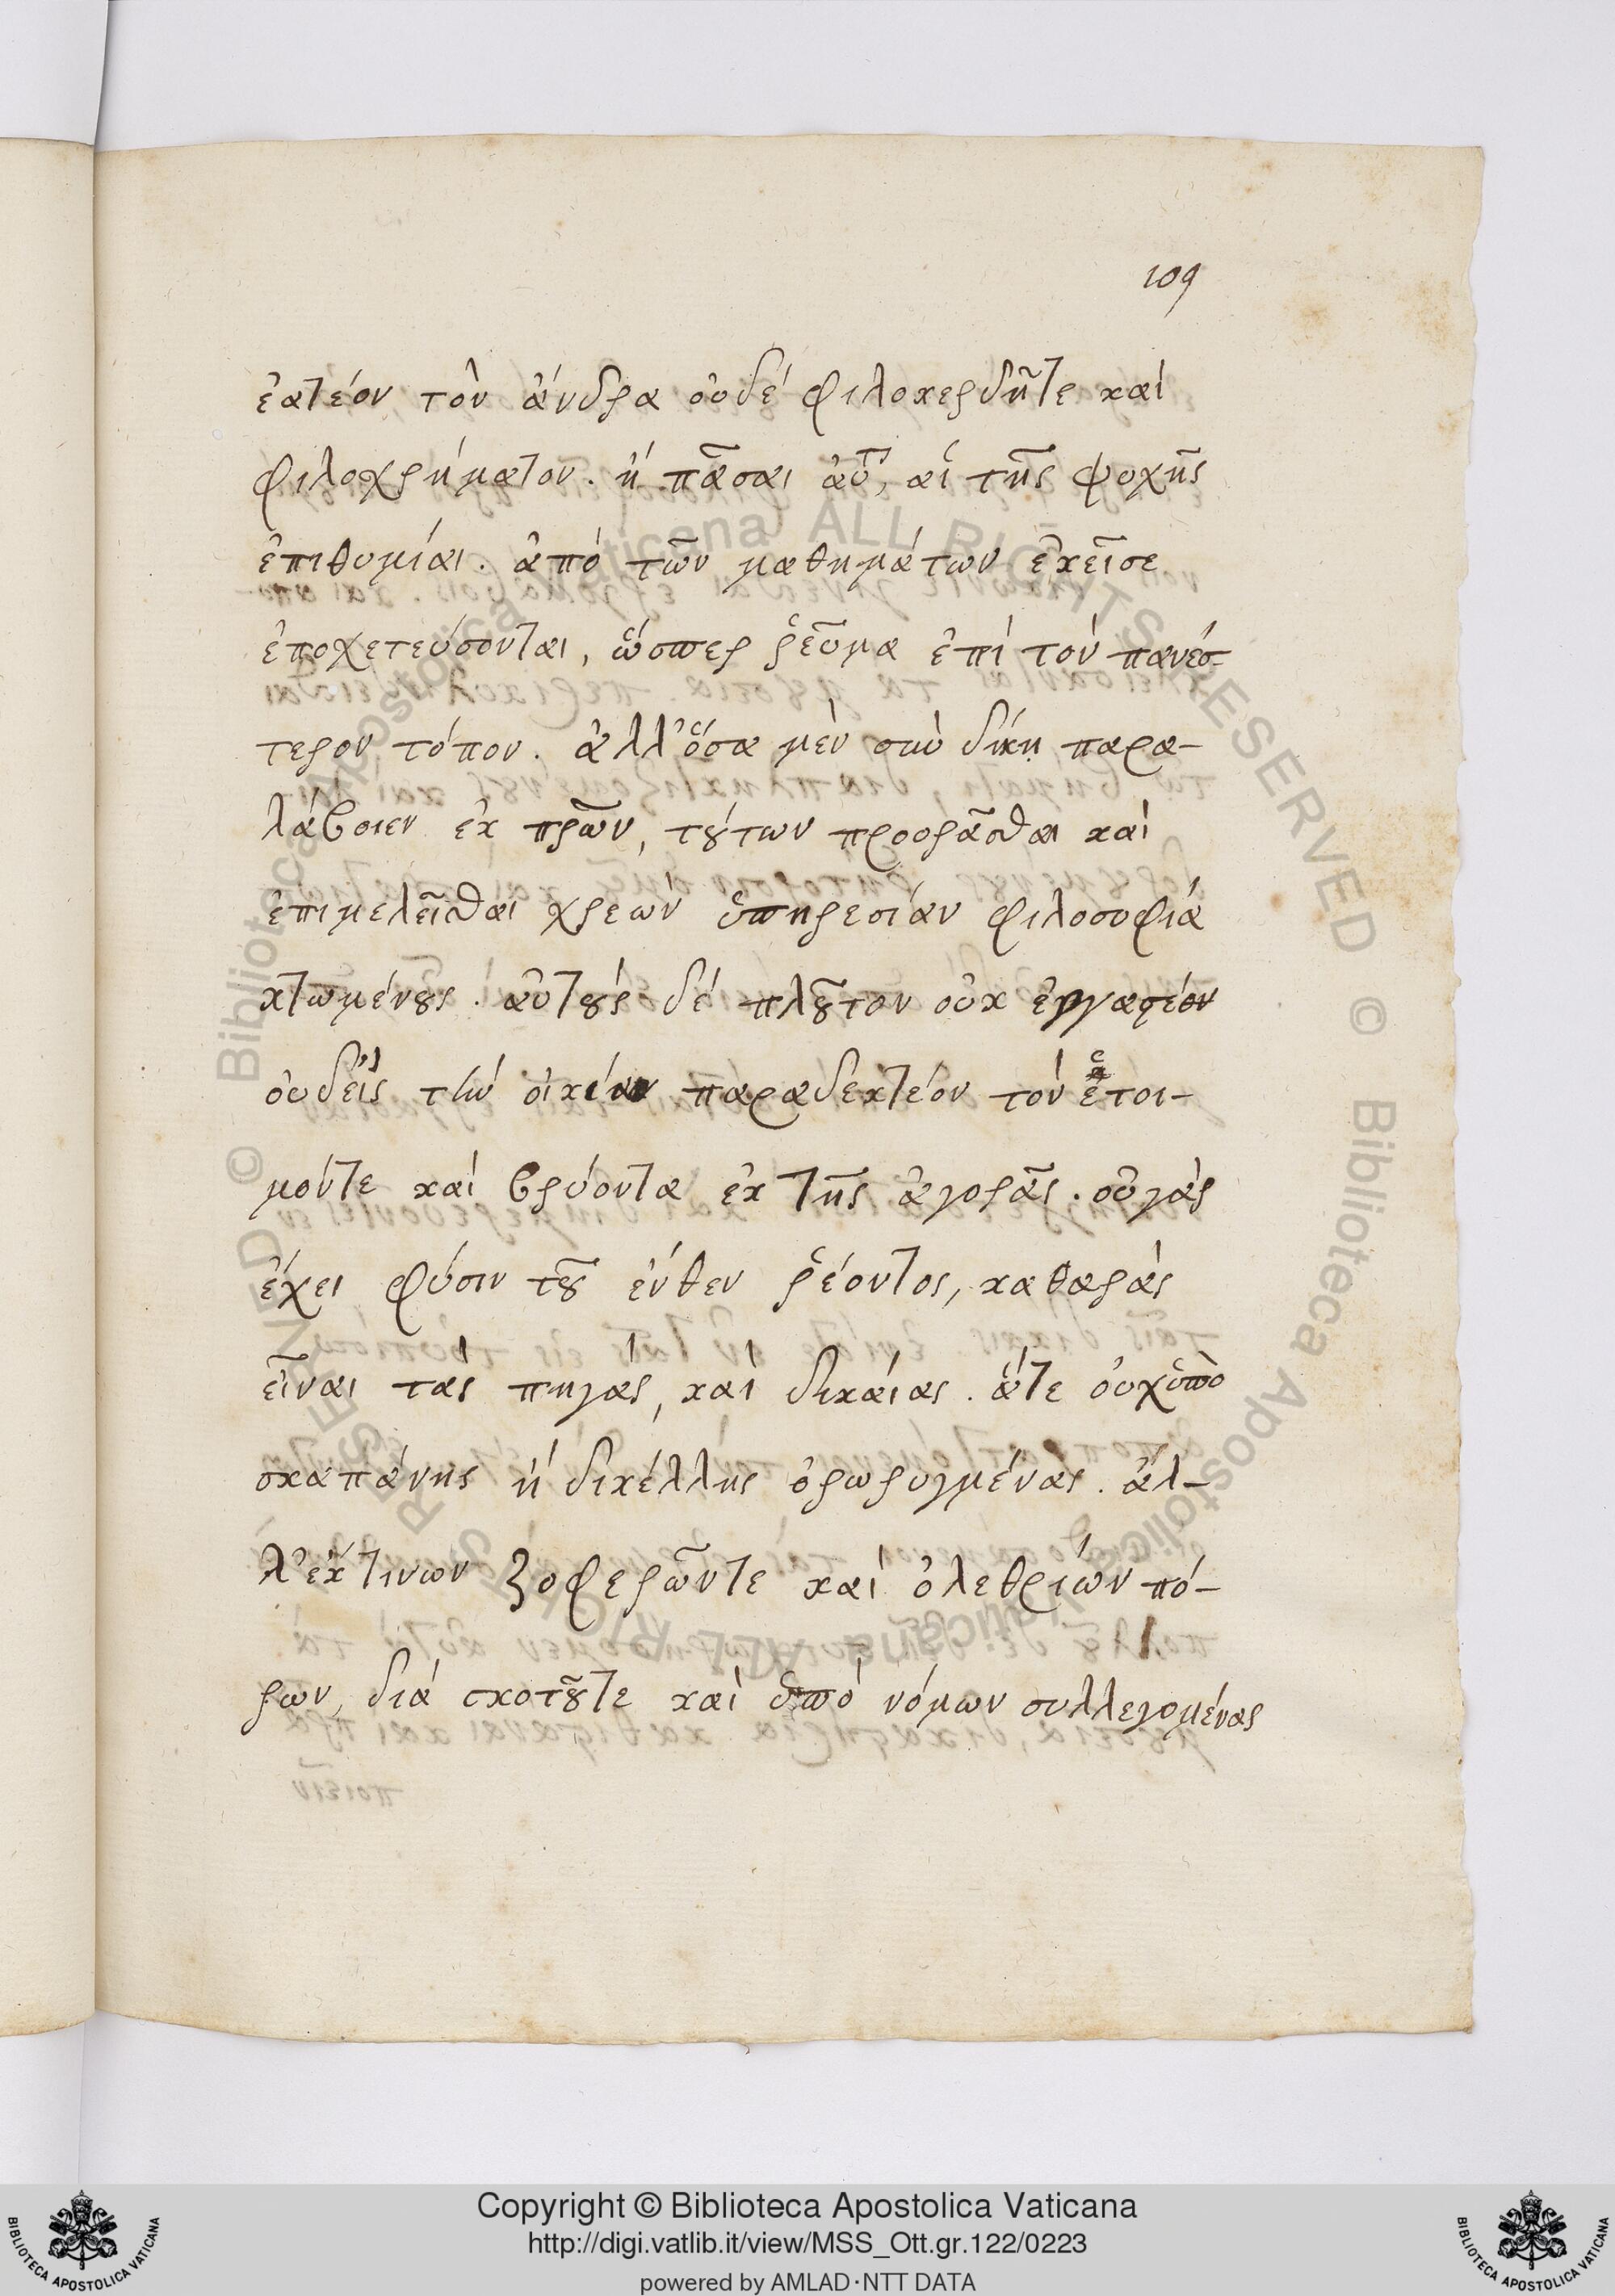 109
ἐατέον τὸν ἄνδρα οὐδέ φιλοκερδῆτε καὶ
φιλοχρήματον. ἡ πᾶσαι ἀυτ, αἱ τῆς ψυχῆς
ἐπιθυμίαι. ἀπὸ τῶν μαθημάτων ἐκεῖσε
ἐποχετεύσονται, ὥσπερ ῥεῦμα ἐπὶ τὸν πανέσ-
τερον τόπον. ἀλλ' ὅσα μὲν σὺν δίκῃ παρα-
λάβοιεν ἐκ πρῶν, τούτων προορᾶσθαι καὶ
ἐπιμελεῖσθαι χρεὼν ὑπηρεσίαν φιλοσοφία
κτωμένους. αὐτοὺς δέ πλοῦτον οὐκ ἐργαστέον
οὐδεὶς τὴν οἰκίαν παραδεκτέον τὸν ἕτοι-
μόντε καὶ βρύοντα ἐκ τῆς ἀγορᾶς. οὐ γὰρ
ἔχει φύσιν τοῦ ἔνθεν ῥέοντος, καθαρὰς
εἶναι τὰς πηγὰς, καὶ δικαίας. ἅτε οὐχ ὑπὸ
σκαπάνης ἢ δικέλλης ὀρωρυγμένας. ἀλ-
λ' ἔκ τινων ζοφερῶντε καὶ ὀλεθρίων πό-
ρων, διά σκοτοῦτε καὶ ὑπὸ νόμων συλλεγομένας
© Biblioteca Apostolica Vaticana ALL RIGHTS RESERVED © Biblioteca Apostolica Vaticana ALL RIGHTS RESERVED
Copyright © Biblioteca Apostolica Vaticana
http://digi.vatlib.it/view/MSS_Ott.gr.122/0223
powered by AMLAD·NTT DATA
BIBLIOTECA APOSTOLICA VATICANA
BIBLIOTECA APOSTOLICA VATICANA